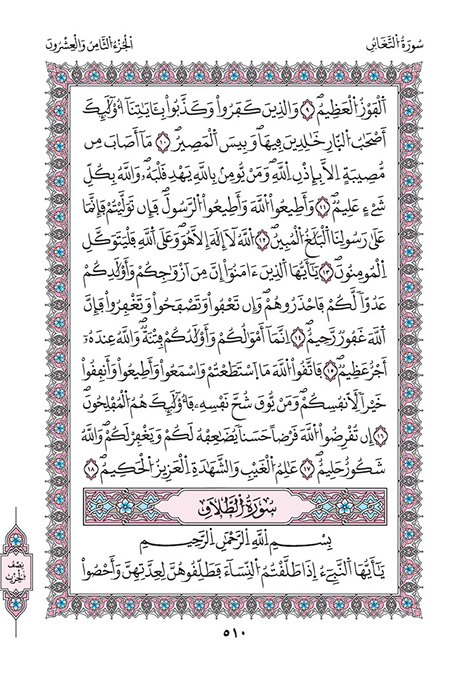 سُورَةُ التَّغَابُنِ
الجُزْءُ الثَّامِنُ وَالْعِشْرُونَ
اَلْفَوْزُ الْعَظِيمُۖ ٩ وَالذِينَ كَفَرُواْ وَكَذَّبُواْ بِـَٔايَٰتِنَآ أُوْلَٰٓئِكَ
أَصْحَٰبُ النّ۪ارِ خَٰلِدِينَ فِيهَاۖ وَبِيسَ اَلْمَصِيرُۖ ١٠ مَآ أَصَابَ مِن
مُّصِيبَةٍ اِلَّا بِإِذْنِ اِللَّهِۖ وَمَنْ يُّومِنۢ بِاللَّهِ يَهْدِ قَلْبَهُۥۖ وَاللَّهُ بِكُلِّ
شَےْءٍ عَلِيمٞۖ ١١ وَأَطِيعُواْ اُللَّهَ وَأَطِيعُواْ اُلرَّسُولَۖ فَإِن تَوَلَّيْتُمْ فَإِنَّمَا
عَلَىٰ رَسُولِنَا اَلْبَلَٰغُ اُلْمُبِينُۖ ١٢ اُللَّهُ لَآ إِلَٰهَ إِلَّا هُوَۖ وَعَلَى اَللَّهِ فَلْيَتَوَكَّلِ
اِلْمُومِنُونَۖ ١٣ يَٰٓأَيُّهَا اَلذِينَ ءَامَنُوٓاْ إِنَّ مِنَ اَزْوَٰجِكُمْ وَأَوْلَٰدِكُمْ
عَدُوّاٗ لَّكُمْ فَاحْذَرُوهُمْۖ وَإِن تَعْفُواْ وَتَصْفَحُواْ وَتَغْفِرُواْ فَإِنَّ
اَللَّهَ غَفُورٞ رَّحِيمٌۖ ١٤ اِنَّمَآ أَمْوَٰلُكُمْ وَأَوْلَٰدُكُمْ فِتْنَةٞۖ وَاللَّهُ عِندَهُۥٓ
أَجْرٌ عَظِيمٞۖ ١٥ فَاتَّقُواْ اُللَّهَ مَا اَسْتَطَعْتُمْ وَاسْمَعُواْ وَأَطِيعُواْ وَأَنفِقُواْ
خَيْراٗ لِّأَنفُسِكُمْۖ وَمَنْ يُّوقَ شُحَّ نَفْسِهِۦ فَأُوْلَٰٓئِكَ هُمُ اُلْمُفْلِحُونَۖ
١٦ إِن تُقْرِضُواْ اُللَّهَ قَرْضاً حَسَناٗ يُضَٰعِفْهُ لَكُمْ وَيَغْفِرْ لَكُمْۖ وَاللَّهُ
شَكُورٌ حَلِيمٌۖ ١٧ عَٰلِمُ اُلْغَيْبِ وَالشَّهَٰدَةِ اِلْعَزِيزُ اُلْحَكِيمُۖ ١٨
سُورَةُ الطَّلَاقِ
بِسْمِ اِللَّهِ اِلرَّحْمَٰنِ اِلرَّحِيمِ
يَٰٓأَيُّهَا اَلنَّبِےٓءُ اِذَا طَلَّقْتُمُ اُلنِّسَآءَ فَطَلِّقُوهُنَّ لِعِدَّتِهِنَّ وَأَحْصُواْ
نِصْف
الحِزْب
٥١٠